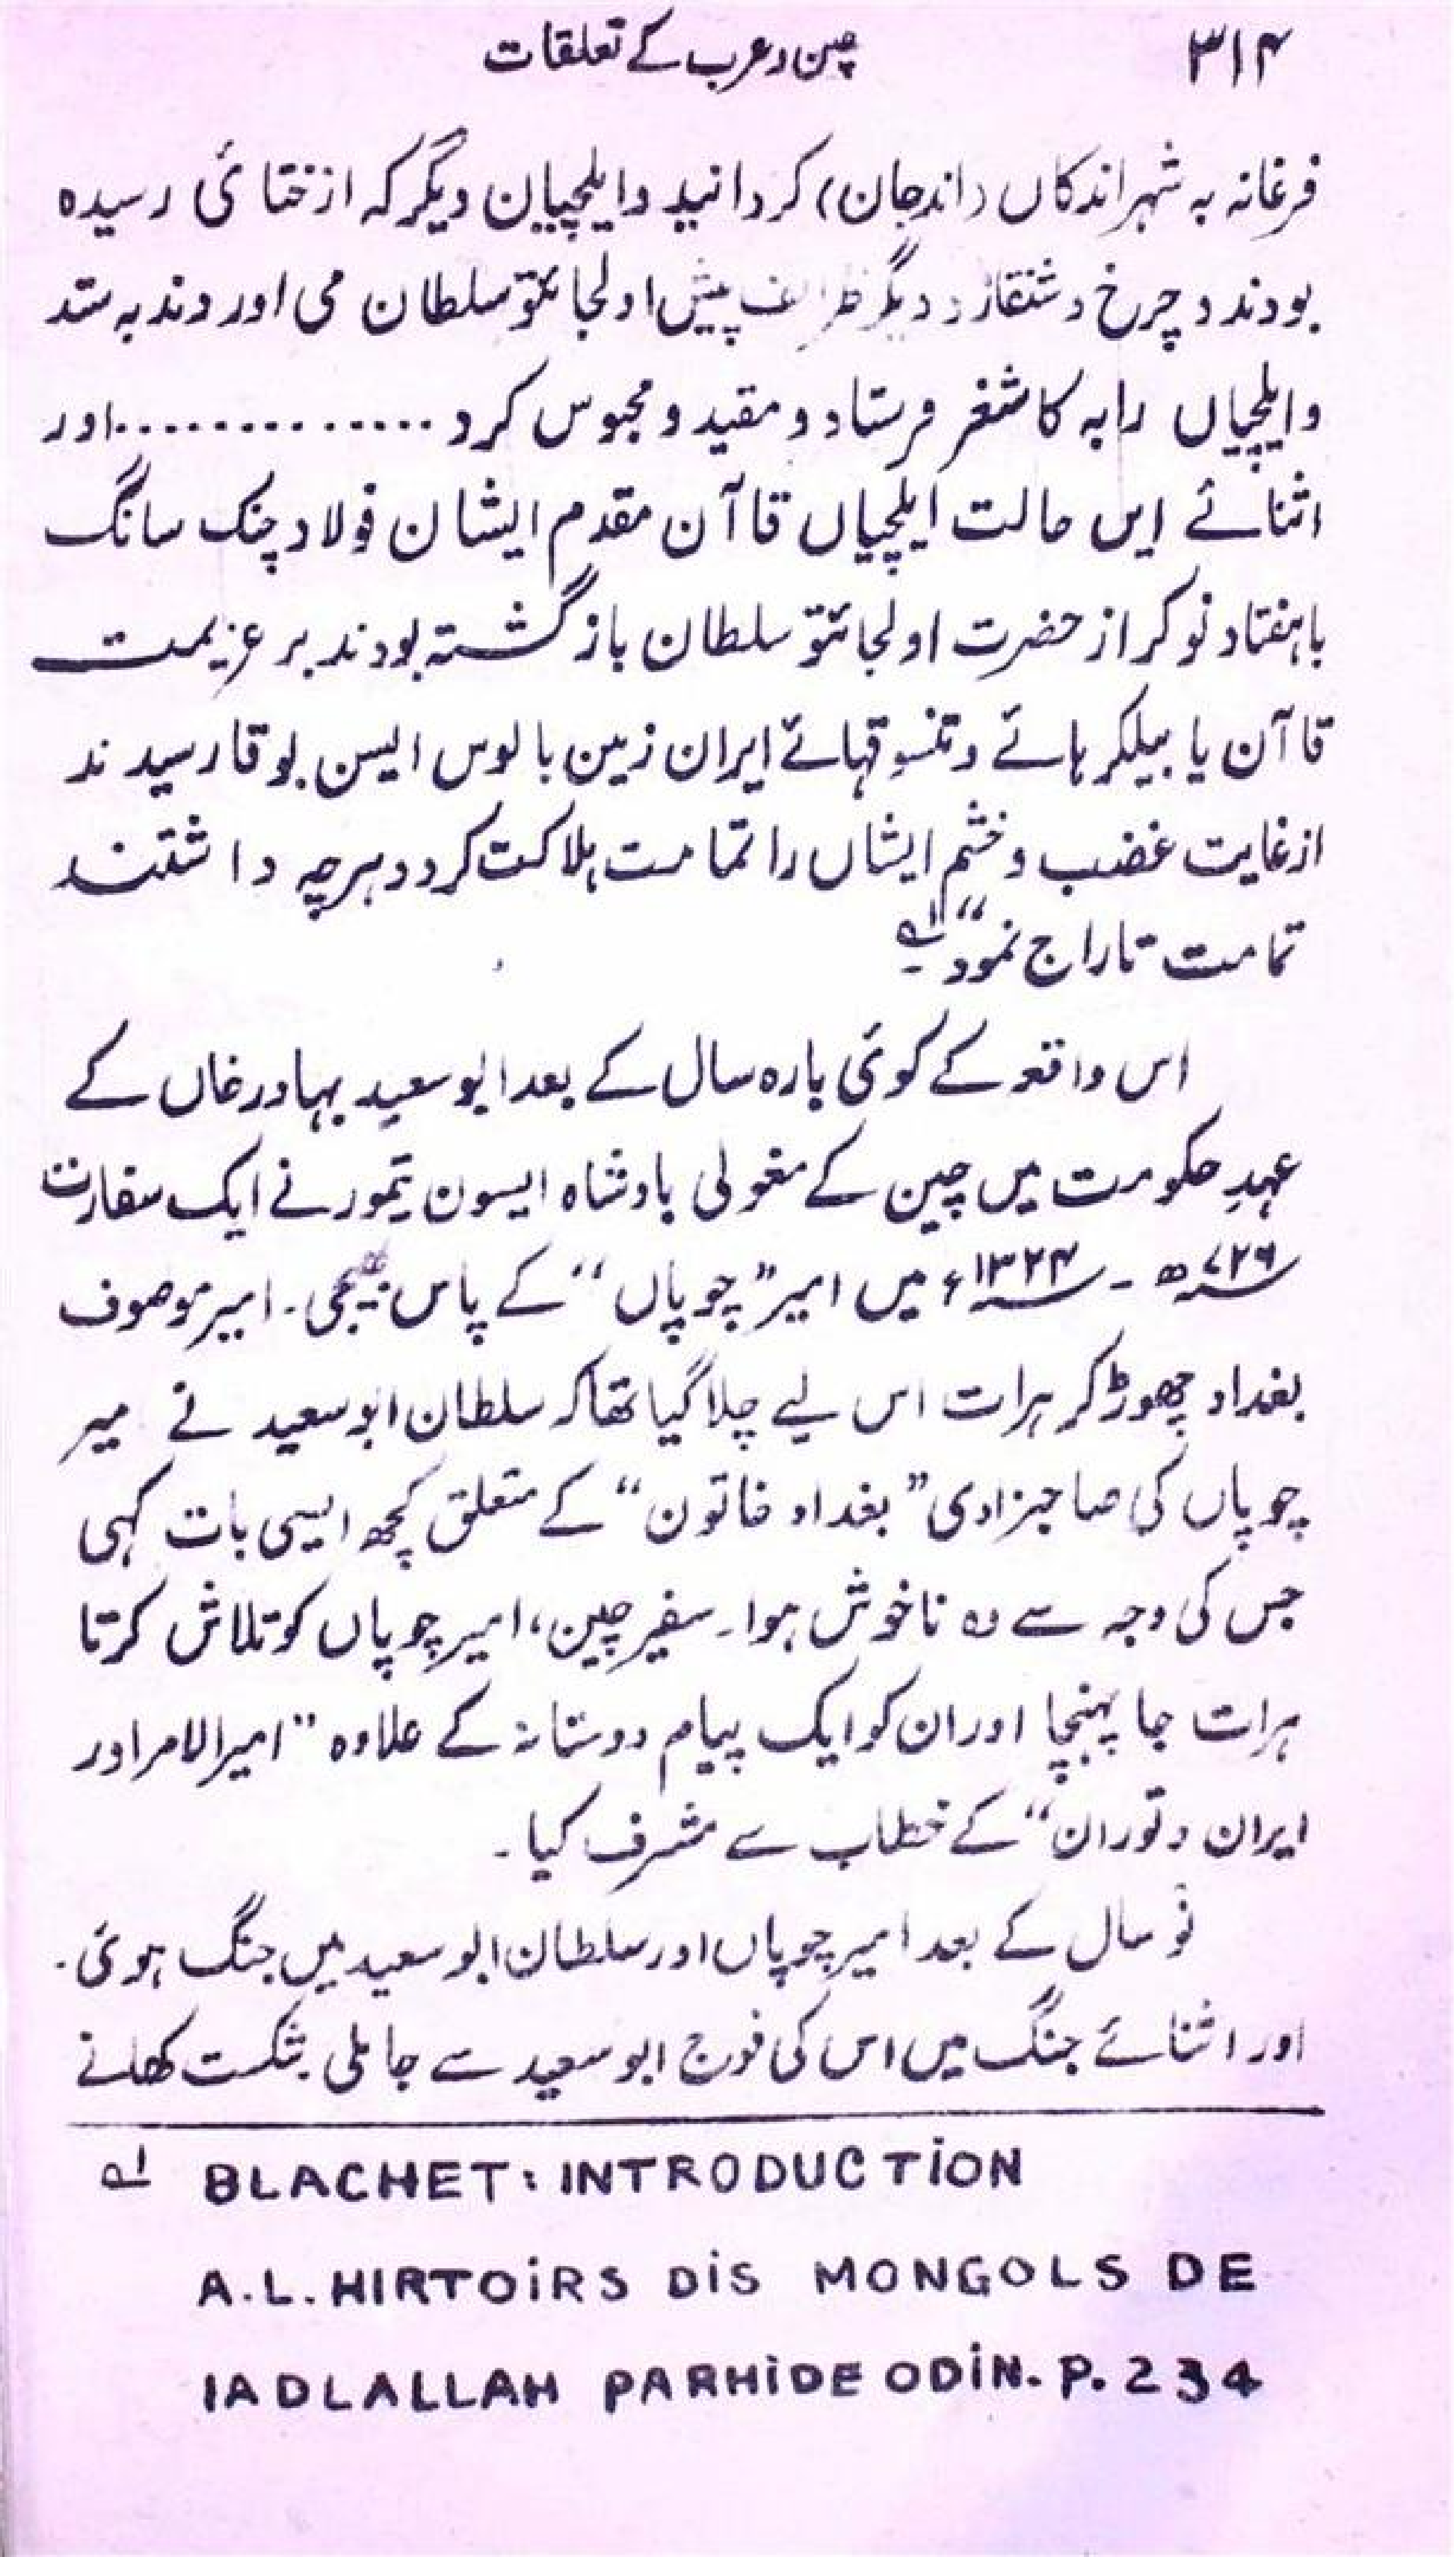 ۳۱۴ چین و عرب کے تعلقات
فرغانہ بہ شہر اندکاں (اندجان) کردانید وایلچیان دیگر کہ از ختائی رسیدہ
بودند و چرخ و شنقار و دیگر ظرائف پیش اولجائتو سلطان می اور دند بہ ستد
وایلچیاں را بہ کاشغر فرستاد و مقید و مجبوس کرد ............. اور
اثنائے ایں حالت ایلچیاں قاآن مقدم ایشان فولاد چنک سانگ
باہفتاد نوکر از حضرت اولجائتو سلطان بازگشتہ بودند بر عزیمت
قاآن یا بیلکرہائے وتنسوقہائے ایران زمین بالوس ایسن بوقا رسیدند
از غایت غضب و خشم ایشاں را تمامت ہلاکت کرد و ہرچہ داشتند
تمامت تاراج نمود“ لہ
اس واقعہ کے کوئی بارہ سال کے بعد ابو سعید بہادر خاں کے
عہدِ حکومت میں چین کے مغولی بادشاہ ایسون تیمور نے ایک سفارت
۷۲۶ھ - ۱۳۲۴ء میں امیر ”چوپاں“ کے پاس بھیجی ۔ امیر موصوف
بغداد چھوڑ کر ہرات اس لیے چلا گیا تھا کہ سلطان ابو سعید نے میر
چوپاں کی صاحبزادی ”بغداد خاتون“ کے متعلق کچھ ایسی بات کہی
جس کی وجہ سے وہ ناخوش ہوا ۔ سفیر چین، امیر چوپاں کو تلاش کرتا
ہرات جا پہنچا اور ان کو ایک پیام دوستانہ کے علاوہ ”امیر الامراور
ایران و توران“ کے خطاب سے مشرف کیا ۔
نو سال کے بعد امیر چوپاں اور سلطان ابو سعید میں جنگ ہوئی ۔
اور اثنائے جنگ میں اس کی فوج ابو سعید سے جا ملی ۔ شکست کھانے
لہ BLACHET: INTRODUCTION
A.L. HIRTOIRS DIS MONGOLS DE
IADLALLAH PARHIDE ODIN. P. 234